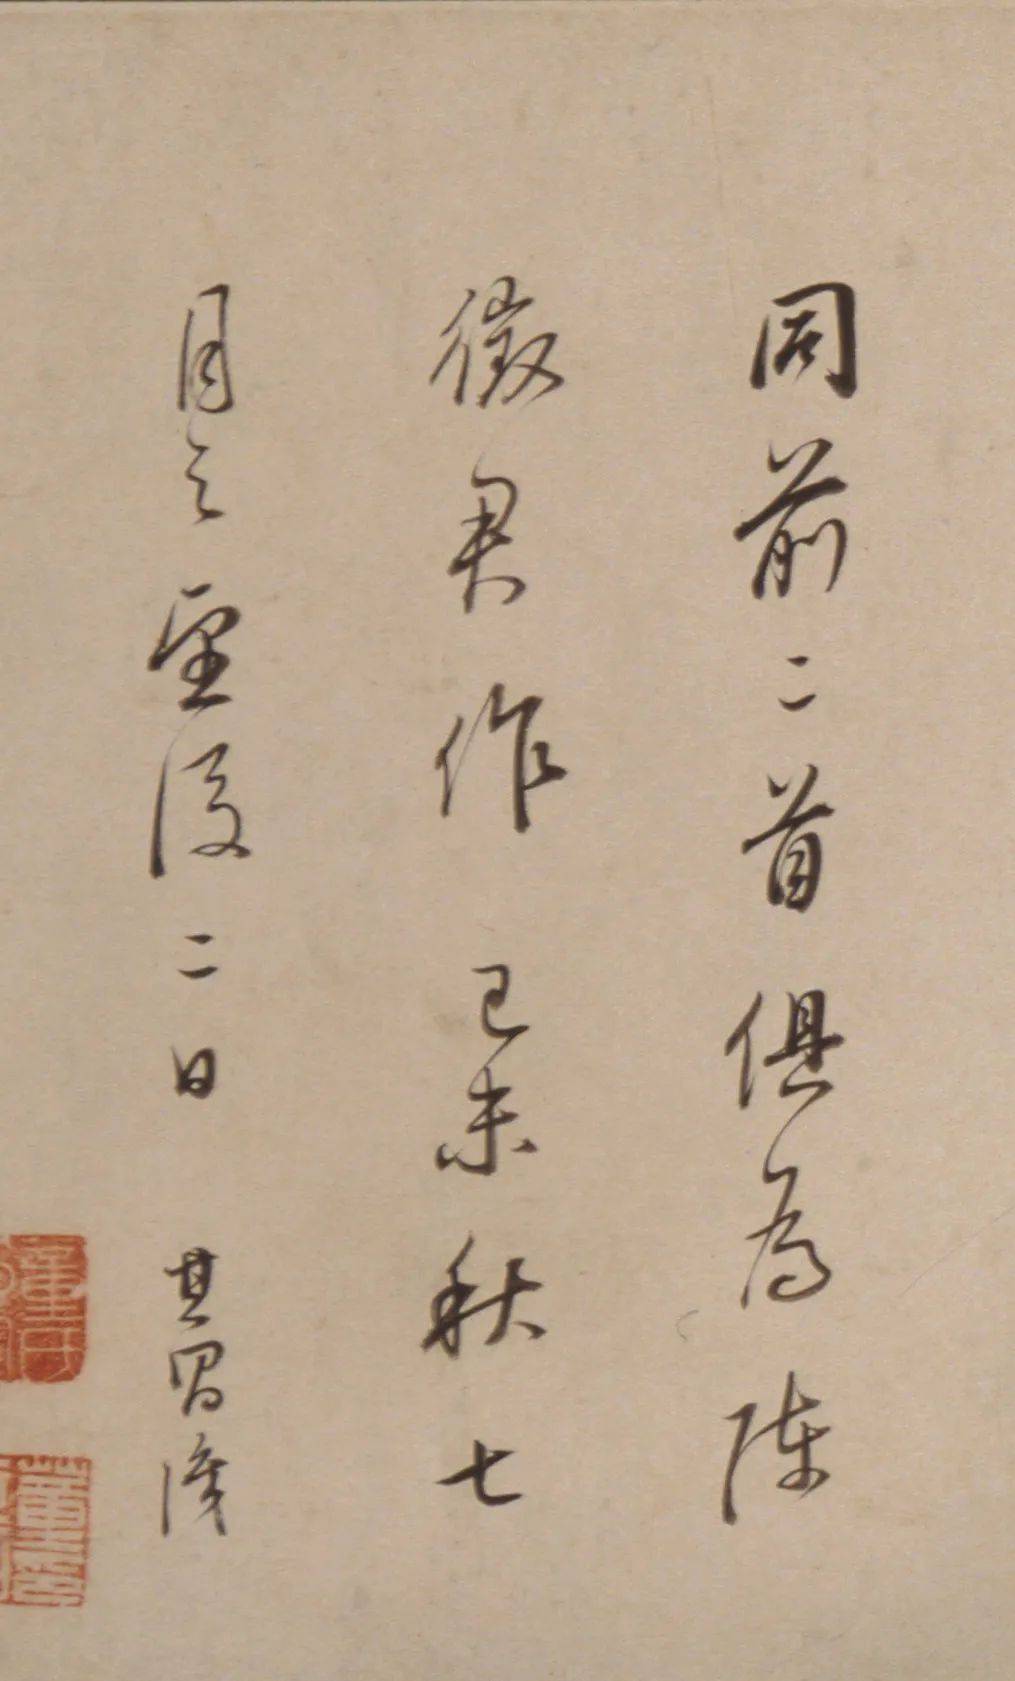 同前二首俱為陳
徵君作 己未秋七
月之望後二日 其昌識